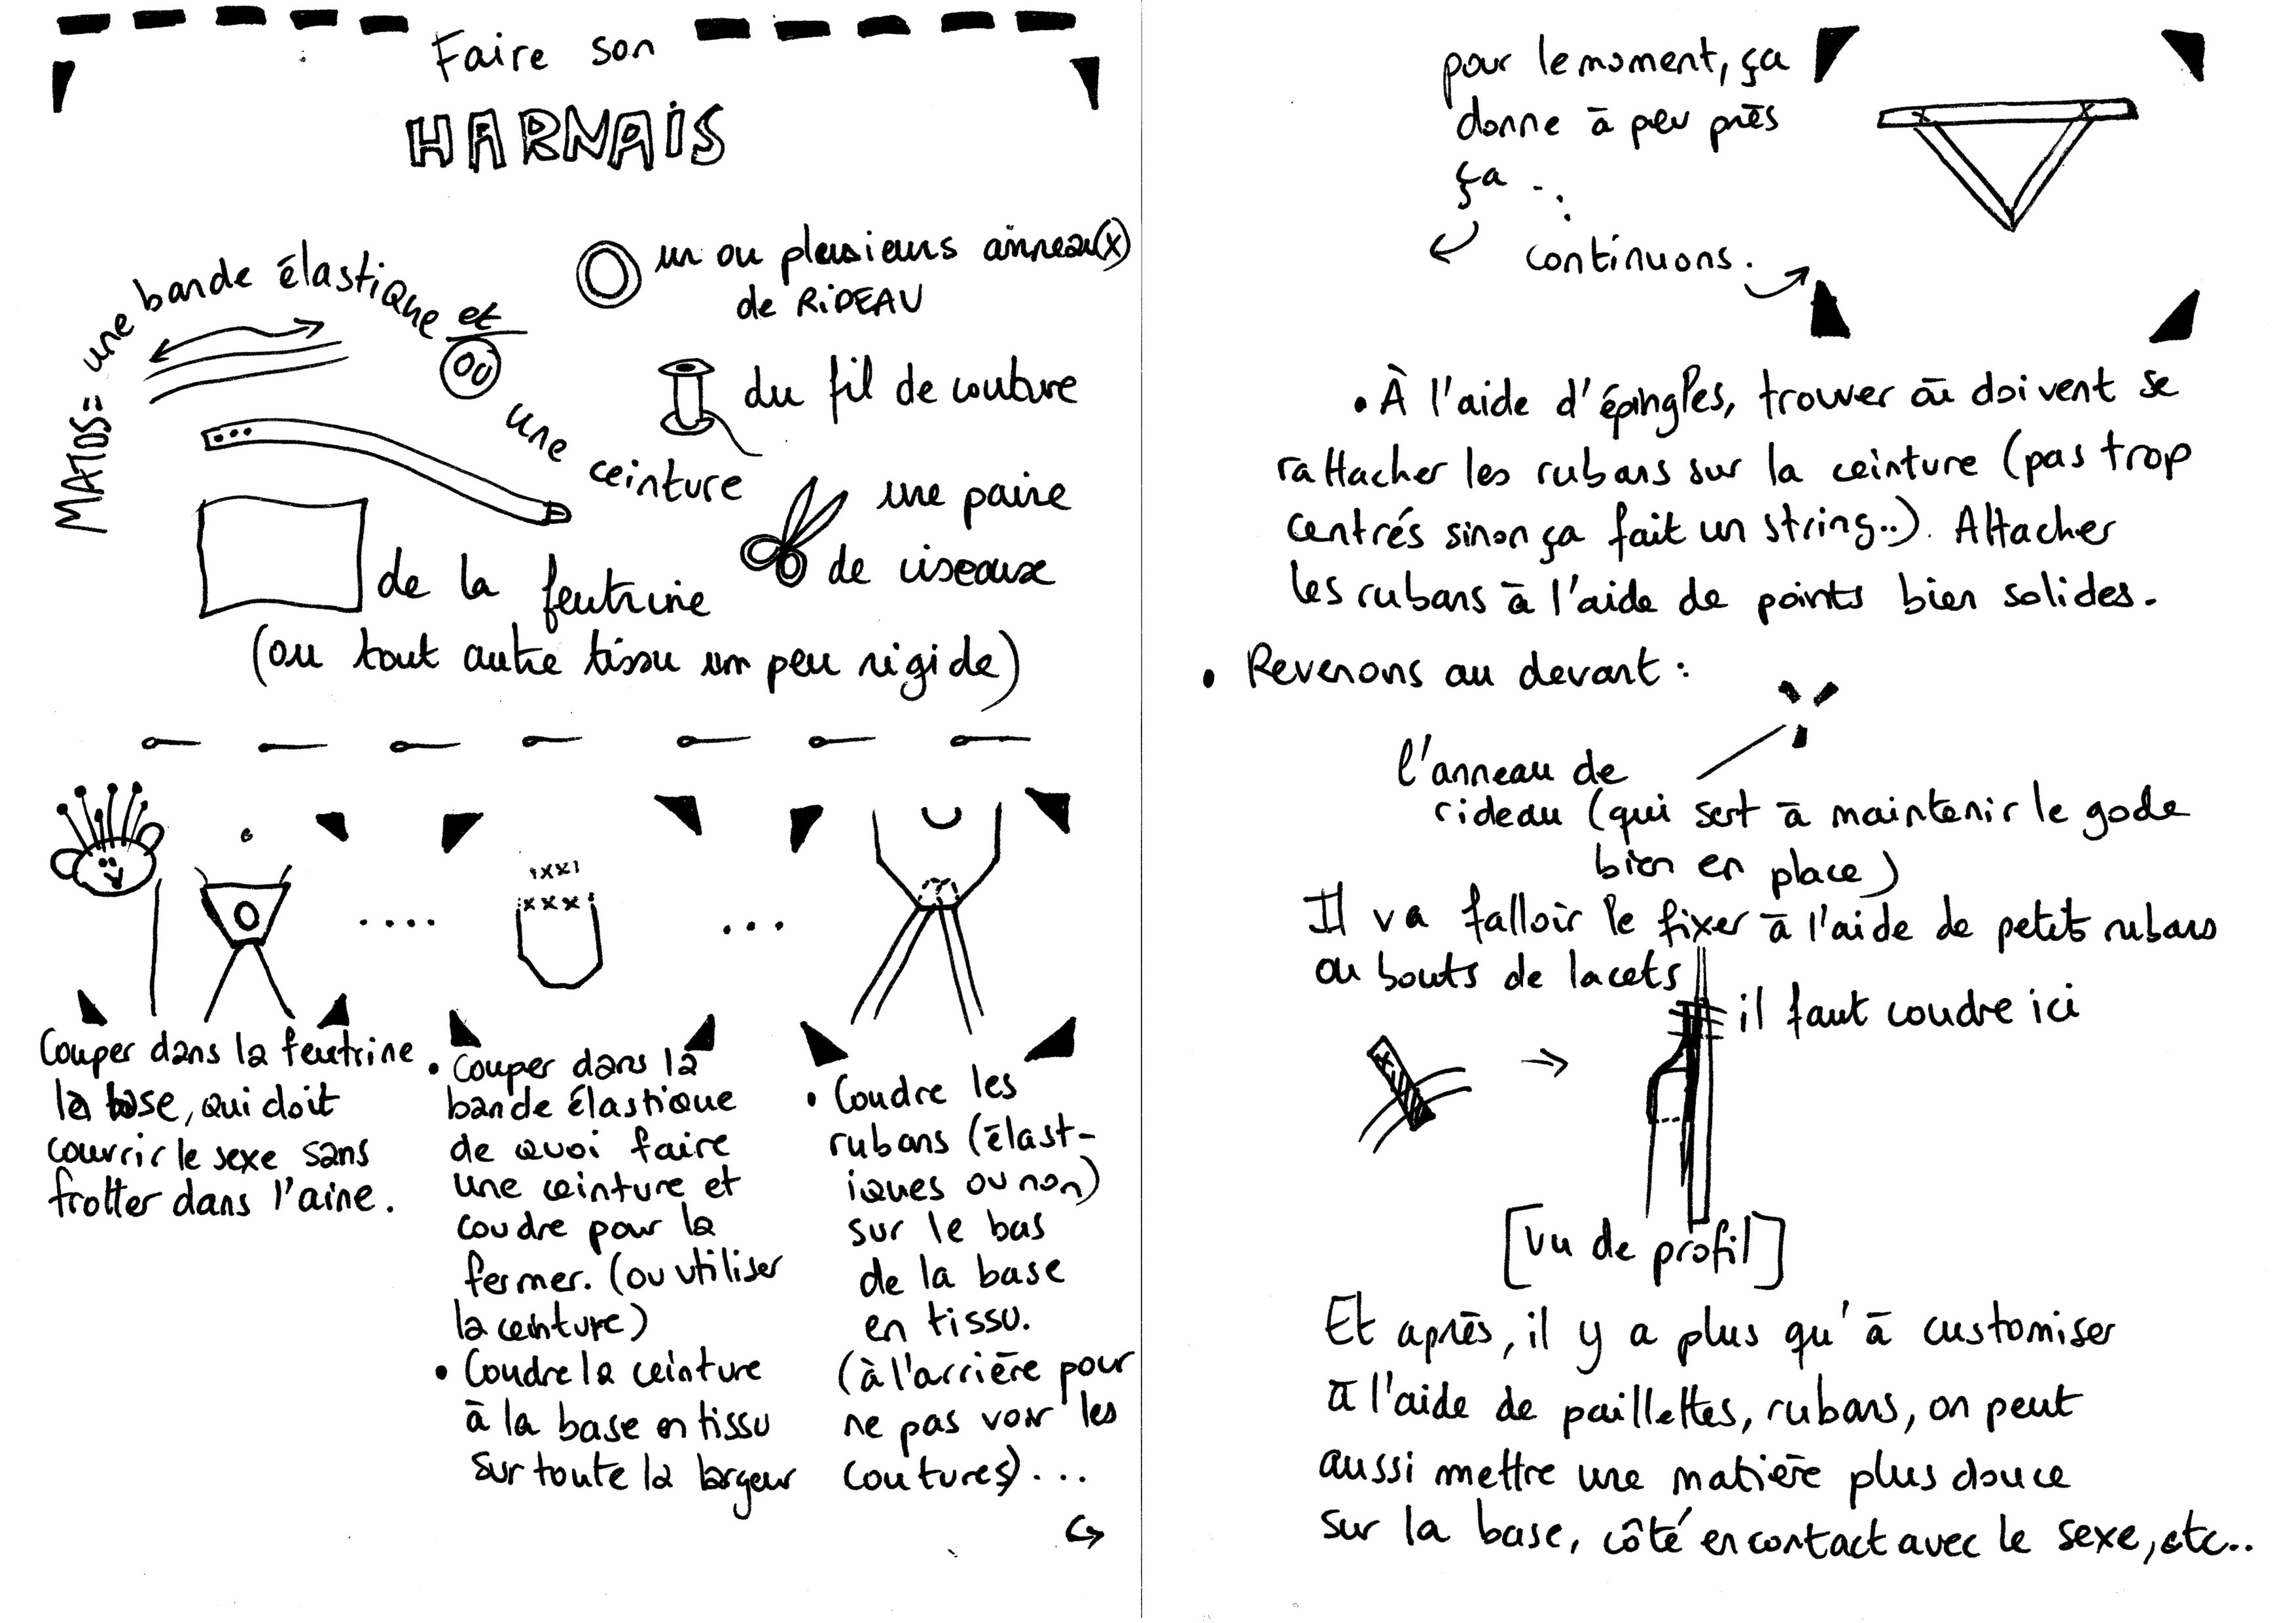 Faire son
HARNAIS
MATOS= une bande élastique et
ou
une ceinture
un ou plusieurs anneau(x)
de RiDEAU
du fil de couture
une paire
de ciseaux
de la feutrine
(ou tout autre tissu un peu rigide)
Couper dans la feutrine
la base, qui doit
couvrir le sexe sans
frotter dans l'aine.
• Couper dans la
bande élastique
de quoi faire
une ceinture et
coudre pour la
fermer. (ou utiliser
la ceinture)
• Coudre la ceinture
à la base en tissu
sur toute la largeur
• Coudre les
rubans (élast-
iques ou non)
sur le bas
de la base
en tissu.
(à l'arrière pour
ne pas voir les
coutures)...
pour le moment, ça
donne à peu près
ça ...
continuons.
• À l'aide d'épingles, trouver où doivent se
rattacher les rubans sur la ceinture (pas trop
centrés sinon ça fait un string..). Attacher
les rubans à l'aide de points bien solides.
• Revenons au devant :
l'anneau de
rideau (qui sert à maintenir le gode
bien en place)
Il va falloir le fixer à l'aide de petits rubans
ou bouts de lacets
il faut coudre ici
[vu de profil]
Et après, il y a plus qu'à customiser
à l'aide de paillettes, rubans, on peut
aussi mettre une matière plus douce
sur la base, côté en contact avec le sexe, etc..